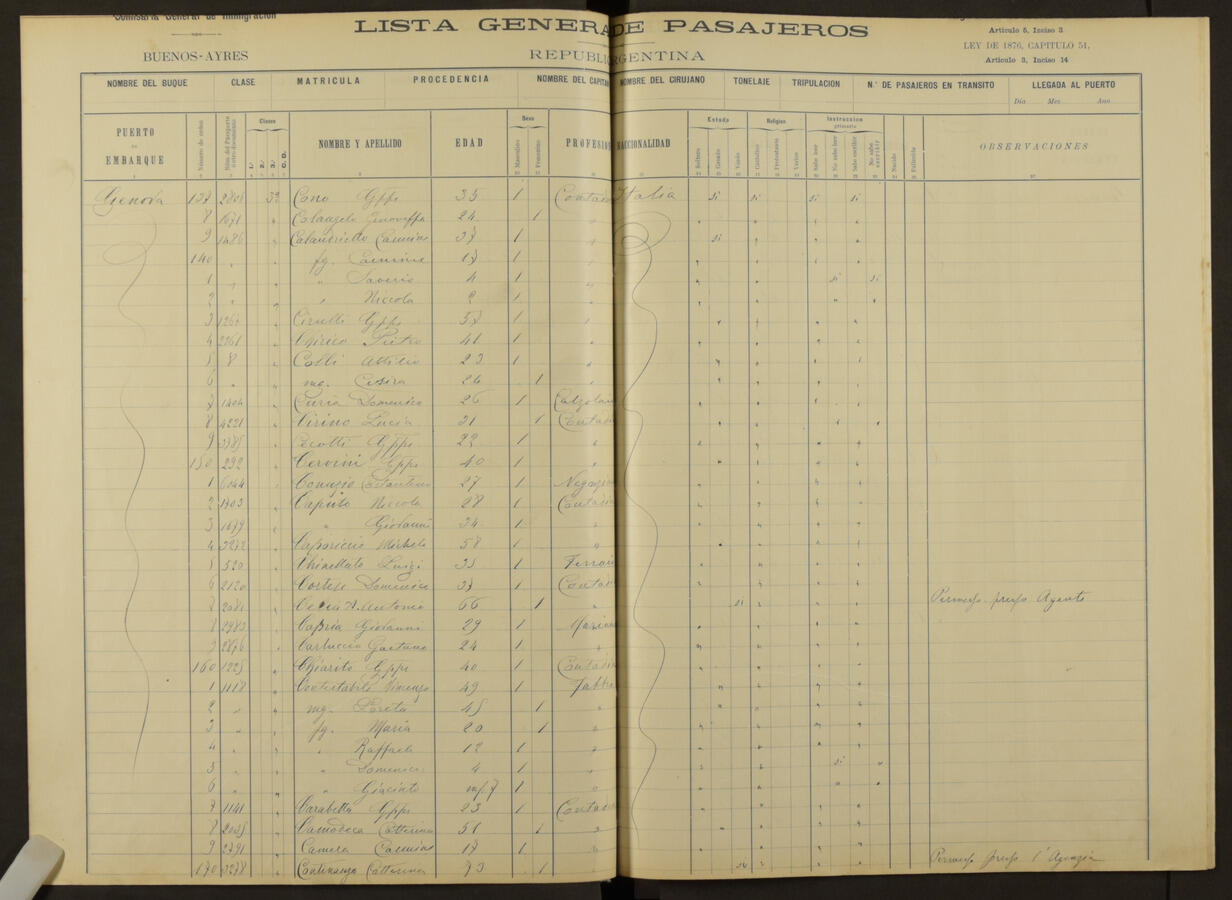 Comisaría General de Inmigración
LISTA GENERA DE PASAJEROS
Artículo 5, Inciso 3
BUENOS-AYRES
REPUBLI RGENTINA
LEY DE 1876, CAPITULO 51,
Artículo 3, Inciso 14
NOMBRE DEL BUQUE CLASE MATRICULA PROCEDENCIA NOMBRE DEL CAPITA NOMBRE DEL CIRUJANO TONELAJE TRIPULACION N.º DE PASAJEROS EN TRANSITO LLEGADA AL PUERTO
Día Mes Año
PUERTO DE EMBARQUE Número de orden Clases 1.ª 2.ª 3.ª C.O. NOMBRE Y APELLIDO EDAD Sexo Masculino Femenino PROFESIO NACIONALIDAD Estado Soltero Casado Viudo Religion Católico Protestante Varios Instruccion primaria Sabe leer No sabe leer Sabe escribir No sabe escribir Nacido Fallecido OBSERVACIONES
Genova 137 2808 3ª Cono Gppe 35 1 Contad Italia si si si si
8 1671 Colangelo Genoveffa 24 1
9 1486 Calandriello Carmine 37 1 si
140 fg. Carmine 17 1
1 " Saverio 4 1 si si
2 " Niccola 2 1
3 Cirulli Gppe 57 1
4 2261 Chirico Pietro 41 1
5 8 Colli Attilio 23 1
6 mg. Cesira 26 1
7 1404 Curia Domenico 26 1 Calzola
8 4221 Cirino Lucia 31 1 Contad
9 3785 Cecotti Gppe 22 1
150 292 Cervini Gppe 40 1
1 6044 Comuzio Costantino 27 1 Negozia
2 1903 Caputo Niccola 28 1 Contadi
3 1679 " Giovanni 34 1
4 3272 Caporicci Michele 58 1
5 520 Chinellato Luigi 35 1 Ferrai
6 2120 Cortese Domenico 37 1 Contad
7 2081 Antonia 66 1 si Permesso presso Agente
8 2983 Capria Giovanni 29 1 Marin
9 2876 Carluccio Gaetano 24 1
160 1225 Chiarito Gppe 40 1 Contadi
1 1118 Contestabile Vincenzo 49 1 Fabbr
2 mg. Loreta 45 1
3 fg. Maria 20 1
4 " Raffaele 12 1
5 " Domenico 4 1 si
6 " Giacinto m/7 1
7 1141 Carabetta Gppe 23 1 Contad
8 2035 Camodeca Catterina 51 1
9 2791 Camera Carmine 17 1
170 3278 Costanzo Catterina 73 1 si Permesso presso l'Agenzia